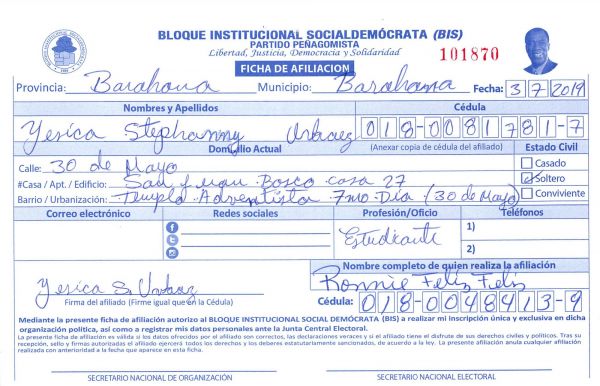 BLOQUE INSTITUCIONAL SOCIALDEMÓCRATA (BIS)
PARTIDO PEÑAGOMISTA
Libertad, Justicia, Democracia y Solidaridad
101870
FICHA DE AFILIACION
Provincia: Barahona Municipio: Barahona Fecha: 3 7 2019
Nombres y Apellidos Cédula
Yesica Stephanny Urbaez 018-0081781-7
Domicilio Actual (Anexar copia de cédula del afiliado) Estado Civil
Calle: 30 de Mayo Casado
#Casa / Apt. / Edificio: San Juan Bosco casa 27 Soltero
Barrio / Urbanización: Templo Adventista 7mo Dia (30 de Mayo) Conviviente
Correo electrónico Redes sociales Profesión/Oficio Teléfonos
Estudiante 1)
2)
Nombre completo de quien realiza la afiliación
Yesica S. Urbaez Ronnie Feliz Feliz
Firma del afiliado (Firme igual que en la Cédula) Cédula: 018-0048413-9
Mediante la presente ficha de afiliación autorizo al BLOQUE INSTITUCIONAL SOCIAL DEMÓCRATA (BIS) a realizar mi inscripción única y exclusiva en dicha
organización política, así como a registrar mis datos personales ante la Junta Central Electoral.
La presente ficha de afiliación es válida si los datos ofrecidos por el afiliado son correctos, las declaraciones veraces y si el afiliado tiene el disfrute de sus derechos civiles y políticos. Tras su
recepción, sello y firmas autorizadas el afiliado ejercerá todos los derechos y los deberes estatutariamente sancionados, de acuerdo a la ley. La presente afiliación anula cualquier afiliación
realizada con anterioridad a la fecha que aparece en esta ficha.
SECRETARIO NACIONAL DE ORGANIZACIÓN SECRETARIO NACIONAL ELECTORAL